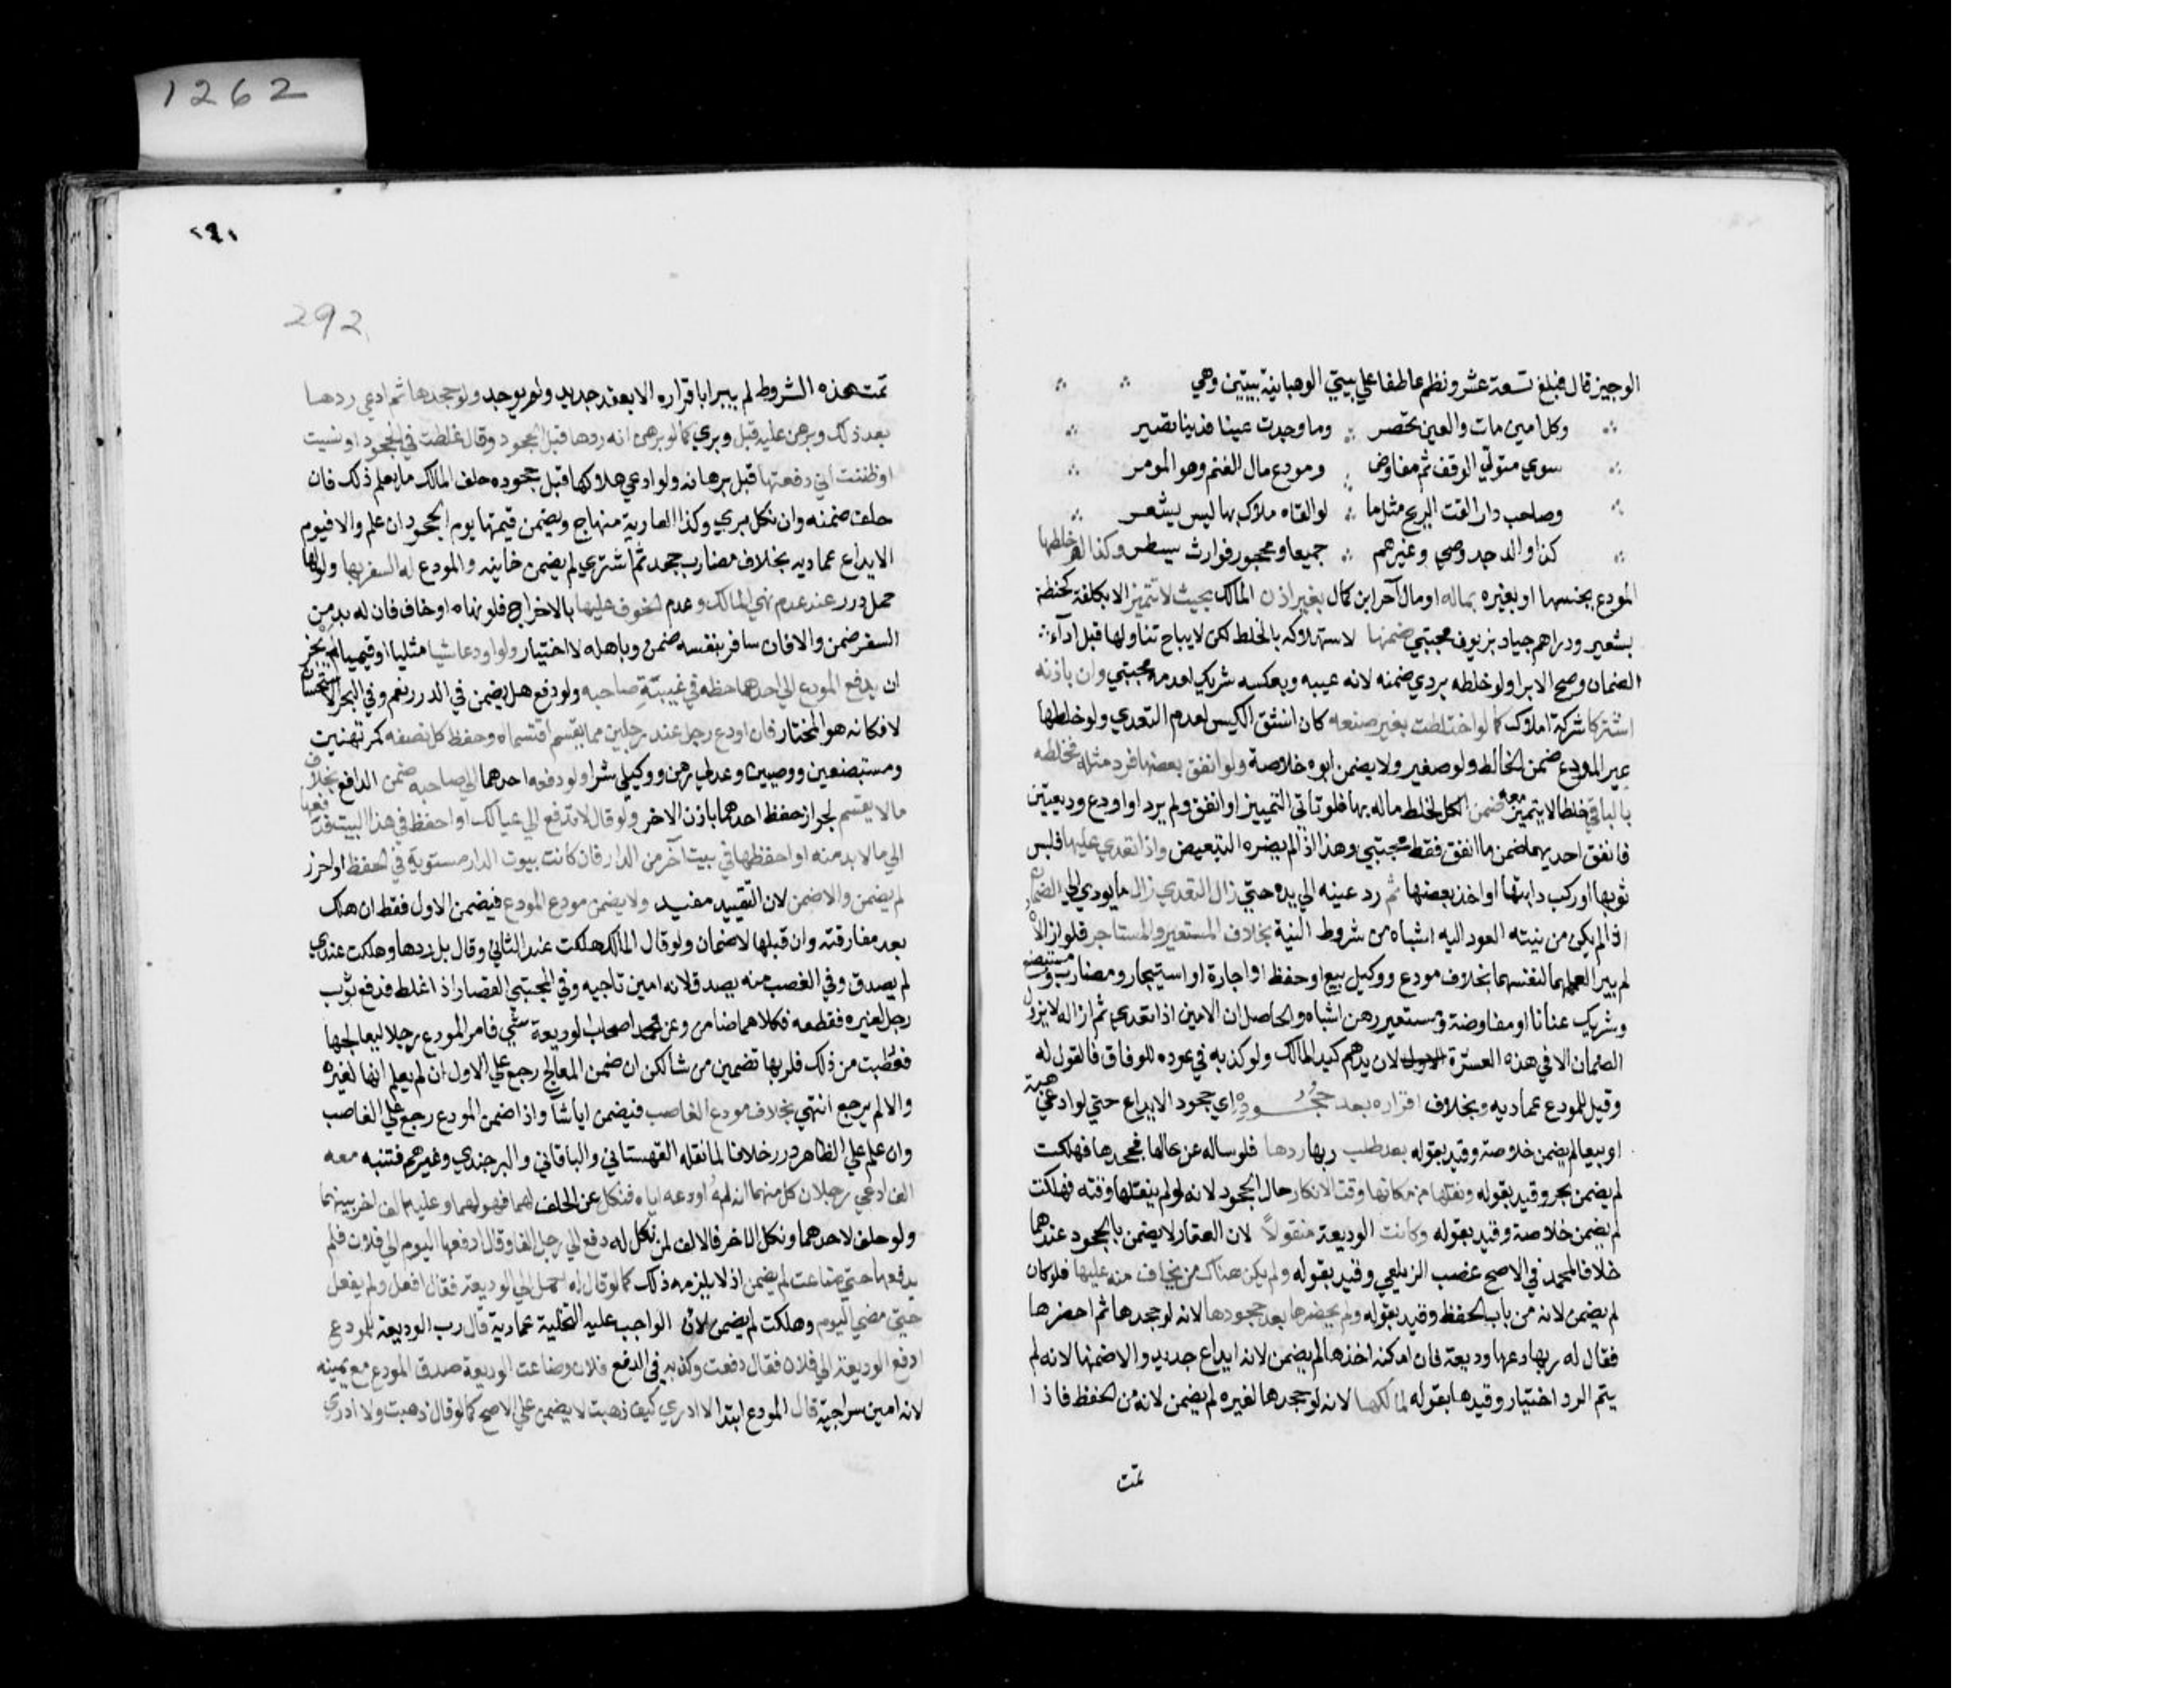 1262
الوجيز قال فبلغ تسعة عشر ونظم عاطفا علي بيتي الوهبانية بيتين وهي
وكل امين مات والعين تحصر وما وجدت عينا فدينا تصير
سوي متولي الوقف ثم مفاوض ومودع مال الغنم وهو المومر
وصاحب دار القت الريح مثل ما لو القاه ملاك بها ليس يشعر
كذا والد جد وصي وغيرهم جميعا ومحجور فوارث يسطر وكذا لو خلطها
المودع بجنسها او بغيره بماله او مال آخر ابن كمال بغير اذن المالك بحيث لا تتميز الا بكلفة كحنطة
بشعير ودراهم جياد بزيوف مجتبي ضمنها لاستهلاكه بالخلط لكن لا يباح تناولها قبل ادآء
الضمان وصح الابرا ولو خلطه بردي ضمنه لانه عيبه وبعكسه شريك لعدمه مجتبي وان باذنه
اشتركا شركة املاك كما لو اختلطت بغير صنعه كان انشق الكيس لعدم التعدي ولو خلطها
غير المودع ضمن الخالط ولو صغير ولا يضمن ابوه خلاصة ولو انفق بعضها فرد مثله فخلطه
بالباقي خلطا لا يتميز معه ضمن الكل لخلط ماله بها فلو تاتي التمييز او انفق ولم يرد او اودع وديعتين
فانفق احديهما ضمن ما انفق فقط مجتبي وهذا اذا لم يضره التبعيض واذا تعدي عليها فلبس
ثوبها او ركب دابتها او اخذ بعضها ثم رد عينه الي يده حتي زال التعدي زال ما يودي الي الضمان
اذا لم يكن من نيته العود اليه اشباه من شروط النية بخلاف المستعير والمستاجر فلو ازالاه
لم يبرا لعملهما لنفسهما بخلاف مودع ووكيل بيع او حفظ او اجارة او استيجار ومضارب ومستبضع
وشريك عنانا او مفاوضة ومستعير رهن اشباه والحاصل ان الامين اذا تعدي ثم ازاله لا يزول
الضمان الا في هذه العشرة لان يدهم كيد المالك ولو كذبه في عوده للوفاق فالقول له
وقيل للمودع عمادية وبخلاف اقراره بعد جحوده اي جحود الايداع حتي لو ادعي هبة
او بيعا لم يضمن خلاصة وقيد بقوله بعد طلب ربها ردها فلو ساله عن حالها فجحدها فهلكت
لم يضمن بحر وقيد بقوله ونقلها من مكانها وقت الانكار حال الجحود لانه لو لم ينقلها وقته فهلكت
لم يضمن خلاصة وقيد بقوله وكانت الوديعة منقولاً لان العقار لا يضمن بالجحود عندهما
خلافا لمحمد في الاصح غصب الزيلعي وقيد بقوله ولم يكن هناك من يخاف منه عليها فلو كان
لم يضمن لانه من باب الحفظ وقيد بقوله ولم يحضرها بعد جحودها لانه لو جحدها ثم احضرها
فقال له ربها دعها وديعة فان امكنه اخذها لم يضمن لانه ايداع جديد والا ضمنها لانه لم
يتم الرد اختيار وقيدها بقوله لمالكها لانه لو جحدها لغيره لم يضمن لانه من الحفظ فاذا
تمت
٢٩١
292
تمت هذه الشروط لم يبرا باقراره الا بعقد جديد ولم يوجد ولو جحدها ثم ادعي ردها
بعد ذلك وبرهن عليه قبل وبري كما لو برهن انه ردها قبل الجحود وقال غلطت في الجحود او نسيت
او ظننت اني دفعتها قبل برهانه ولو ادعي هلاكها قبل جحوده حلف المالك ما يعلم ذلك فان
حلف ضمنه وان نكل بري وكذا العارية منهاج ويضمن قيمتها يوم الجحود ان علم والا فيوم
الايداع عمادية بخلاف مضارب جحد ثم اشتري لم يضمن خانيه والمودع له السفر بها ولو لها
حمل درر عند عدم نهي المالك وعدم الخوف عليها بالاخراج فلو نهاه او خاف فان له بد من
السفر ضمن والا فان سافر بنفسه ضمن وباهله لا اختيار ولو اودعا شيا مثليا او قيميا لم يجز
ان يدفع المودع الي احدهما حظه في غيبة صاحبه ولو دفع هل يضمن في الدرر نعم وفي البحر الاستحسان
لا فكانه هو المختار فان اودع رجل عند رجلين مما يقسم اقتسماه وحفظ كل نصفه كمرتهنين
ومستبضعين ووصيين وعدلي رهن ووكيلي شرا ولو دفعه احدهما الي صاحبه ضمن الدافع بخلاف
ما لا يقسم لجواز حفظ احدهما باذن الاخر ولو قال لا تدفع الي عيالك او احفظ في هذا البيت فدفعها
الي ما لا بد منه او احفظها في بيت آخر من الدار فان كانت بيوت الدار مستوية في الحفظ او احرز
لم يضمن والا ضمن لان التقييد مفيد ولا يضمن مودع المودع فيضمن الاول فقط ان هلك
بعد مفارقته وان قبلها لا ضمان ولو قال المالك هلكت عند الثاني وقال بل ردها وهلكت عندي
لم يصدق وفي الغصب منه يصدق لانه امين تاجيه وفي المجتبي القصار اذا غلط فدفع ثوب
رجل لغيره فقطعه فكلاهما ضامن وعن محمد اصحاب الوديعة شي فامر المودع رجلا ليعالجها
فعطبت من ذلك فلربها تضمين من شا لكن ان ضمن المعالج رجع علي الاول ان لم يعلم انها لغيره
والا لم يرجع انتهي بخلاف مودع الغاصب فيضمن ايا شآ واذا ضمن المودع رجع علي الغاصب
وان علم علي الظاهر درر خلافا لما نقله القهستاني والباقاني والبرجندي وغيرهم فتنبه معه
الف ادعي رجلان كل منهما انه له اودعه اياه فنكل عن الحلف لهما فهو لهما وعليه الف اخر بينهما
ولو حلف لاحدهما ونكل للاخر فالالف لمن نكل له دفع الي رجل الفا وقال ادفعها اليوم الي فلان فلم
يدفعها حتي ضاعت لم يضمن اذ لا يلزمه ذلك كما لو قال له احمل الي الوديعة فقال افعل ولم يفعل
حتي مضي اليوم وهلكت لم يضمن لان الواجب عليه التخلية عمادية قال رب الوديعة للمودع
ادفع الوديعة الي فلان فقال دفعت وكذبه في الدفع فلان وضاعت الوديعة صدق المودع مع يمينه
لانه امين سراجية قال المودع ابتدا لا ادري كيف ذهبت لا يضمن علي الاصح كما لو قال ذهبت ولا ادري